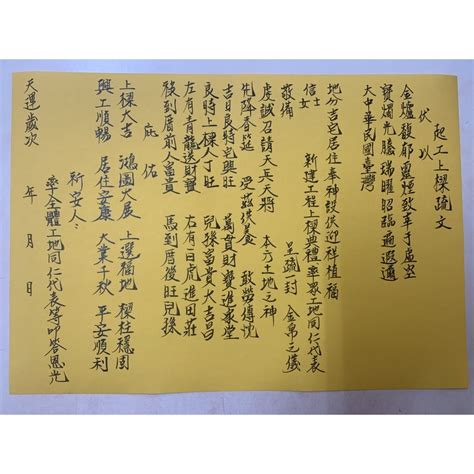 起工上樑疏文
伏以
金爐馥郁靈煙致牽于虛空
寶燭光騰瑞耀昭臨而遐邇
大中華民國臺灣
地分吉宅居住奉神設供迎祥植福
信士女
新建工程上樑典禮率眾工地同仁代表
敬備
呈疏一封 金帛之儀
虔誠召請天兵天將 本方土地之神
先降香筵 受茲供養 敢勞傳沈
吉日良時宅興旺 萬貫財寶進家堂
良時上樑人丁旺 兒孫富貴大吉昌
左有青龍送財寶 右有白虎進田莊
祿到厝前人富貴 馬到厝後旺兒孫
庇佑
上樑大吉 鴻圖大展 上選福地 樑柱穩固
興工順暢 居住安康 大業千秋 平安順利
新安人
率全體工地同仁代表等叩答恩光
天運歲次 年 月 日